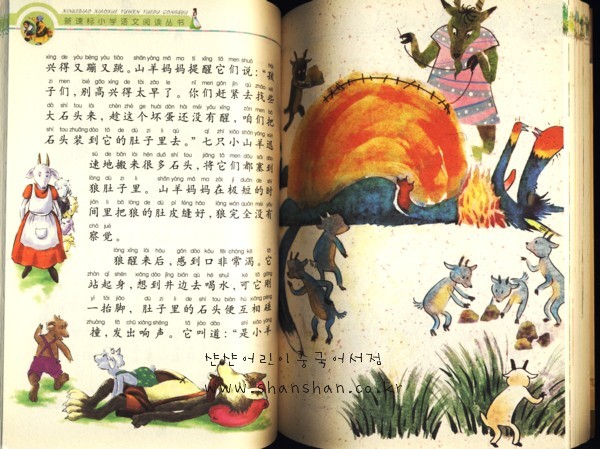 XINKEBIAO XIAOXUE YUWEN YUEDU CONGSHU
新课标小学语文阅读丛书
xìng de yòu bèng yòu tiào shān yáng mā ma tí xǐng tā men shuō hái
兴得又蹦又跳。山羊妈妈提醒它们说：“孩
zi men bié gāo xìng de tài zǎo le nǐ men gǎn jǐn qù zhǎo xiē
子们，别高兴得太早了。你们赶紧去找些
dà shí tou lái chèn zhè ge huài dàn hái méi yǒu xǐng zán men bǎ
大石头来，趁这个坏蛋还没有醒，咱们把
shí tou zhuāng dào tā de dù zi li qù qī zhī xiǎo shān yáng xùn
石头装到它的肚子里去。”七只小山羊迅
sù de bān lái hěn duō shí tou jiāng tā men dōu sāi dào
速地搬来很多石头，将它们都塞到
láng dù zi li shān yáng mā ma zài jí duǎn de shí
狼肚子里。山羊妈妈在极短的时
jiān li bǎ láng de dù pí féng hǎo láng wán quán méi yǒu
间里把狼的肚皮缝好，狼完全没有
chá jué
察觉。
láng xǐng lái hòu gǎn dào kǒu fēi cháng kě tā
狼醒来后，感到口非常渴。它
zhàn qǐ shēn xiǎng dào jǐng biān qù hē shuǐ kě tā gāng
站起身，想到井边去喝水，可它刚
yì tái jiǎo dù zi li de shí tou biàn hù xiāng pèng
一抬脚，肚子里的石头便互相碰
zhuàng fā chū xiǎng shēng tā jiào dào shì xiǎo yáng
撞，发出响声。它叫道：“是小羊
샨샨어린이중국어서점
www.shanshan.co.kr